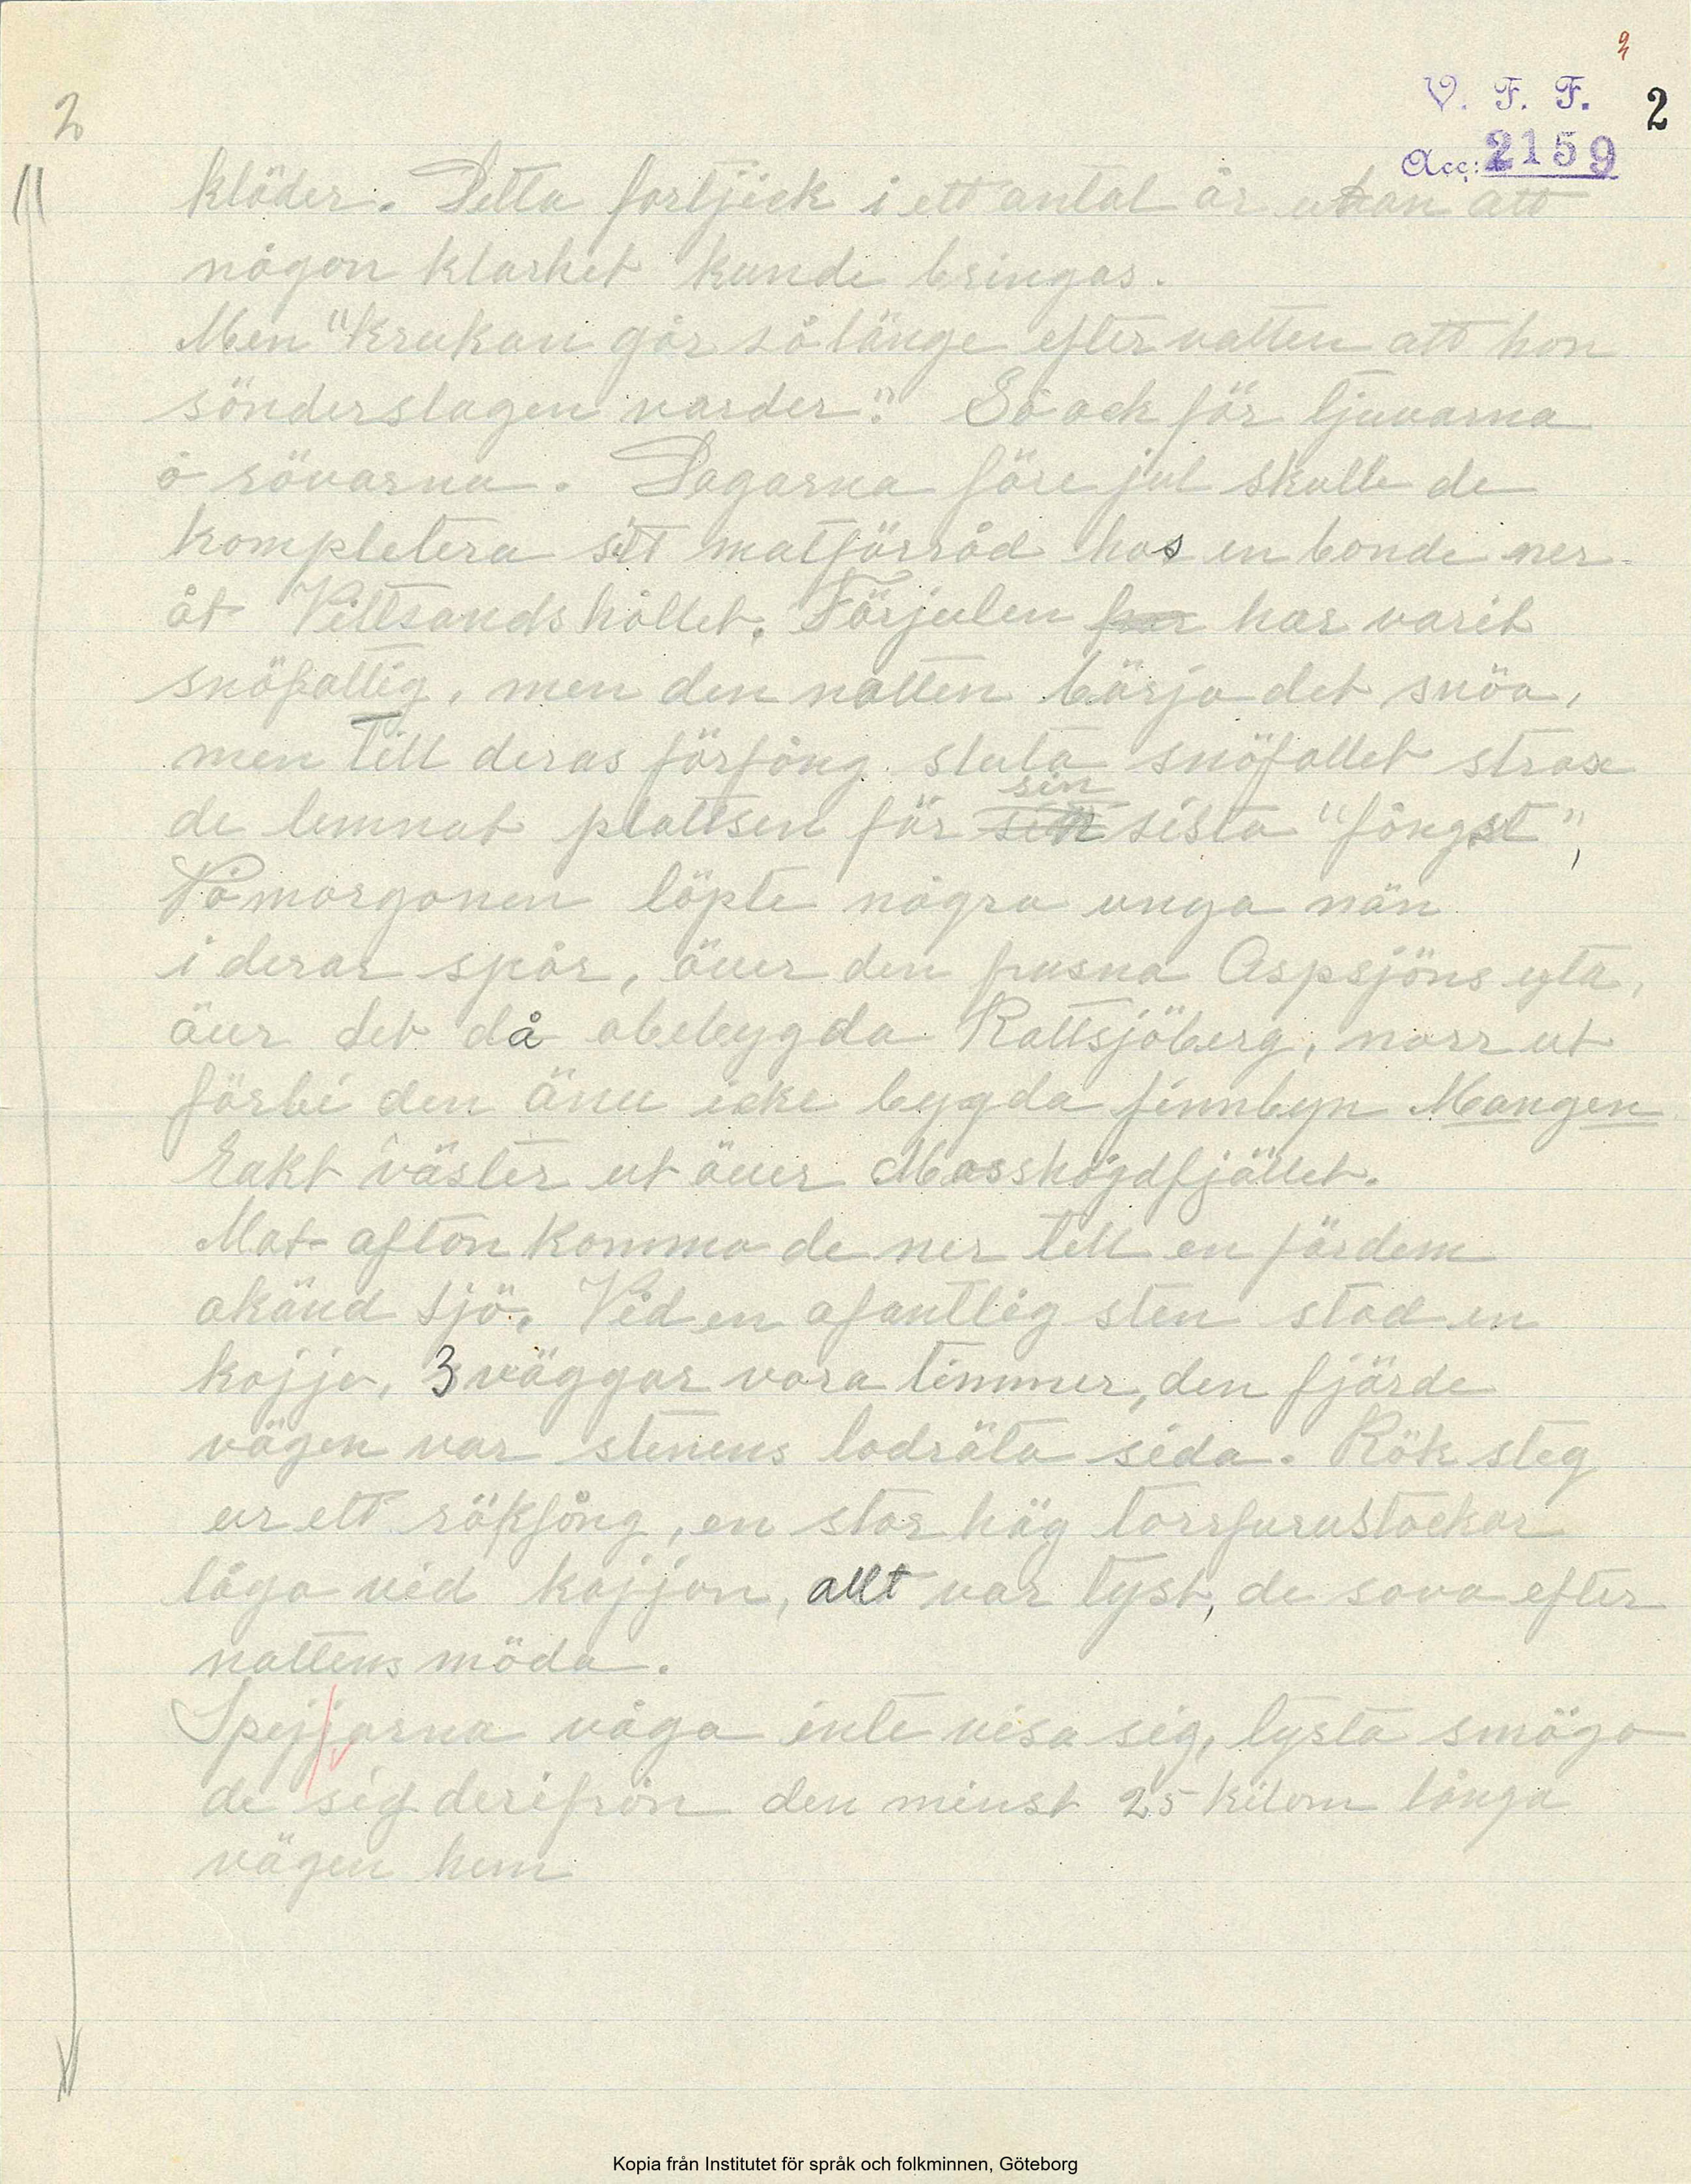 2
V. F. F. 2
Acc: 2159
kläder. Detta fortjick i ett antal år utan att
någon klarhet kunde bringas.
Men "Krukan går så länge efter vatten att hon
sönderslagen varder". Så ock för tjuvarna
å rövarna. Dagarna före jul skulle de
kompletera sitt matförråd hos en bonde ner-
åt Vittsandshållet. Förjulen har har varit
snöfattig, men den natten börja det snöa,
men till deras förfång sluta snöfallet strax
sin
de lemnat plattsen för sista "fångst",
På morgonen löpte några unga män
i deras spår, över den frusna Aspsjöns yta,
över det då obebygda Rattsjöberg, norr ut
förbi den änu icke bygda finnbyn Mangen
Rakt väster ut över Mosshöjdfjället.
Mot afton komma de ner till en för dem
okänd sjö. Vid en ofantlig sten stod en
kojja, 3 väggar vora timmer, den fjärde
vägen var stenens lodräta sida. Rök steg
ur ett rökfång, en stor hög torrfurustockar
låga vid kojjan, allt var tyst, de sova efter
nattens möda.
Spejjarna våga inte visa sig, tysta smöga
de sig derifrån den minst 25 kilom långa
vägen hem
Kopia från Institutet för språk och folkminnen, Göteborg